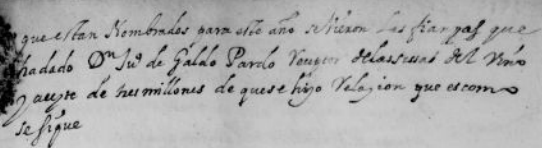 que estan Nombrados para este año se Vieron Las fianças que
hadado Dn Ju° de Galdo Pardo Receptor delassissas del Vino
y aceyte de tres millones de quese hizo Relazion que escomo
se sigue